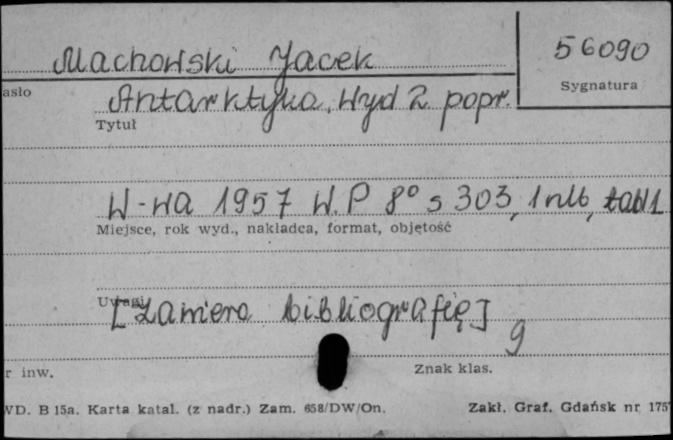 Machowski Jacek
56090
Sygnatura
asło
Antarktyka, Wyd 2 popr.
Tytuł
W-wa 1957 W.P 8° s 303, 1 nlb, tabl 1
Miejsce, rok wyd., nakładca, format, objętość
Uwagi
[Zawiera bibliografię]
9
r inw.
Znak klas.
WD. B 15a. Karta katal. (z nadr.) Zam. 658/DW/On.
Zakł. Graf. Gdańsk nr 175